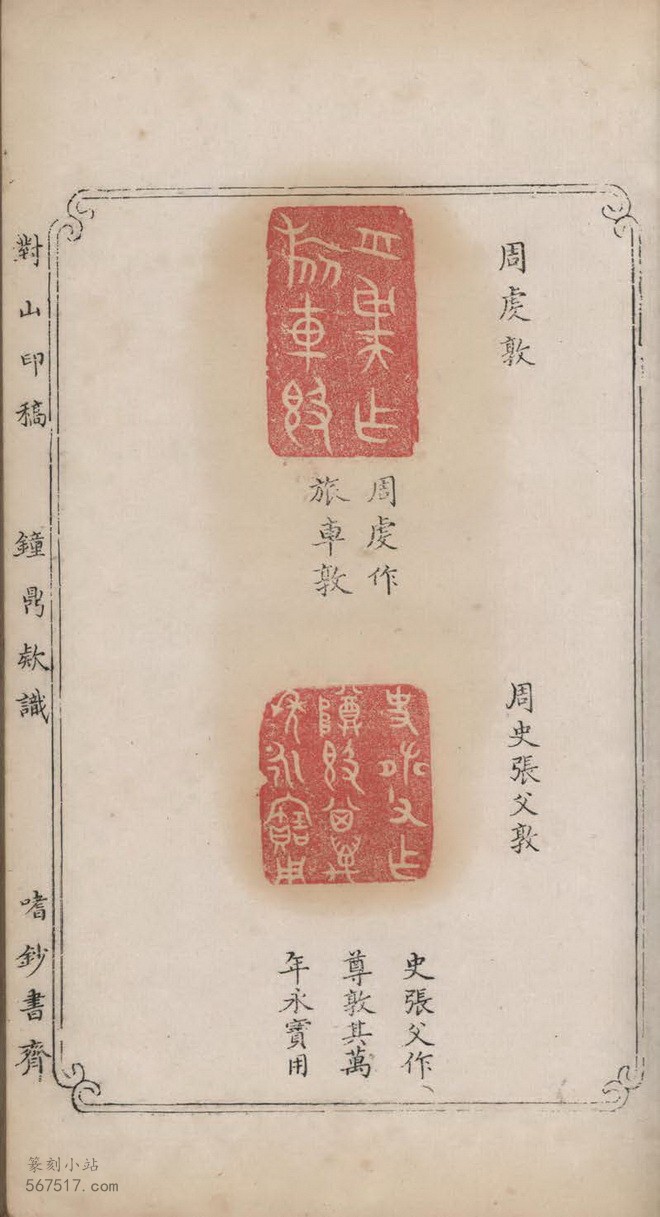 周虔敦
周虔作
旅車敦
周史張父敦
史張父作
尊敦其萬
年永寶用
對山印稿
鐘鼎欵識
嗜鈔書齊
篆刻小站
567517.com